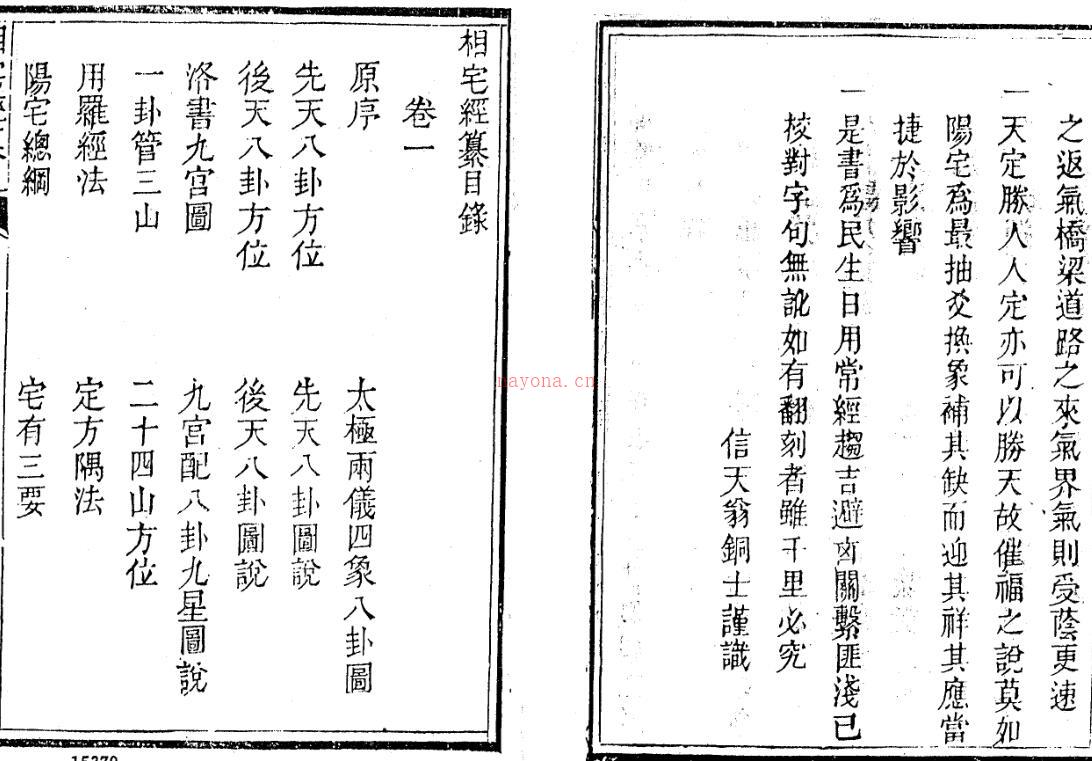 之返氣橋梁道路之來氣界氣則受蔭更速
一天定勝人人定亦可以勝天故催福之說莫如
陽宅爲最抽爻換象補其缺而迎其祥其應當
捷於影響
一是書爲民生日用常經趨吉避凶關繫匪淺已
校對字句無訛如有翻刻者雖千里必究
信天翁銅士謹識
相宅經纂目錄
卷一
原序
太極兩儀四象八卦圖
先天八卦方位
先天八卦圖說
後天八卦方位
後天八卦圖說
洛書九宮圖
九宮配八卦九星圖說
一卦管三山
二十四山方位
用羅經法
定方隅法
陽宅總綱
宅有三要
nayona.cn
15379